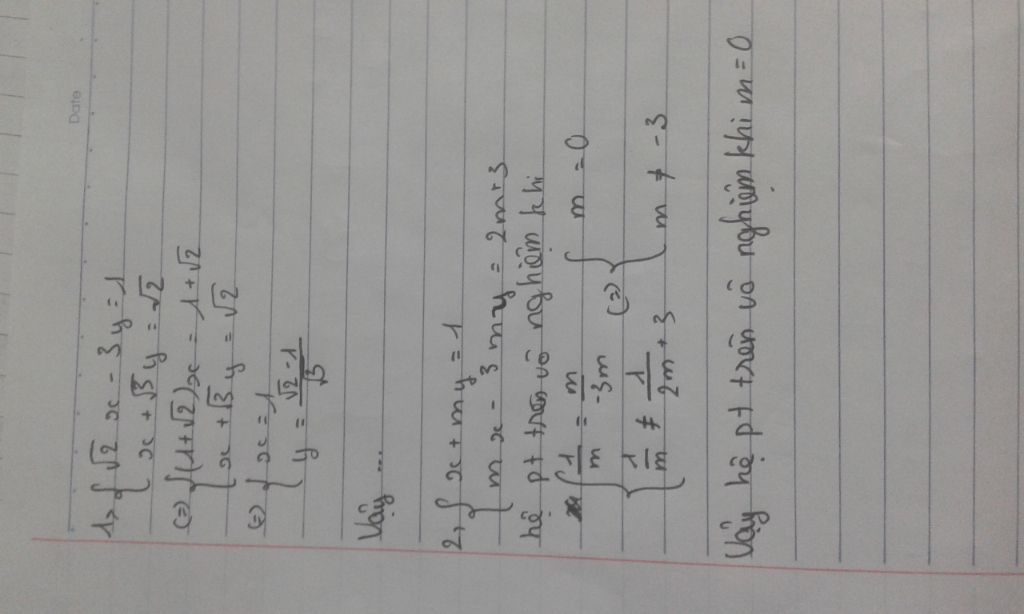 Date
1, { √2 x - 3y = 1
x + √3 y = √2
(=) { (1+√2)x = 1+√2
x + √3 y = √2
(=) { x = 1
y = (√2 - 1)/√3
Vậy ...
2, { x + my = 1
mx - 3my = 2m+3
hệ pt trên vô nghiệm khi
{ 1/m = m/-3m (=) { m = 0
1/m ≠ 1/2m+3 m ≠ -3
Vậy hệ pt trên vô nghiệm khi m = 0